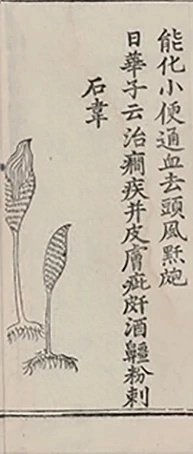 能化小便通血去頭風䵟皰
日華子云治癎疾并皮膚疵皯酒齇粉刺
石韋